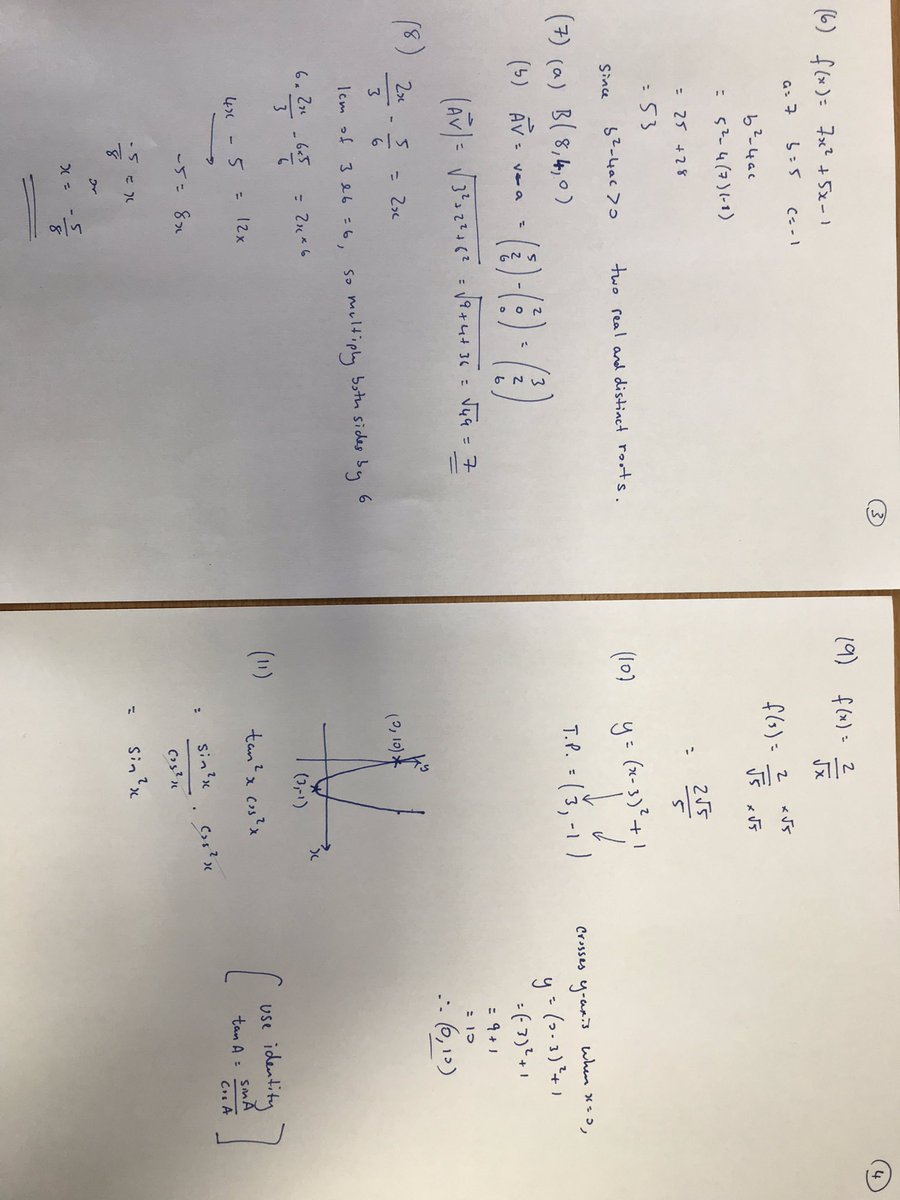 (3)
(6) f(x) = 7x² + 5x - 1
a = 7 b = 5 c = -1
b² - 4ac
= 5² - 4(7)(-1)
= 25 + 28
= 53
since b² - 4ac > 0 two real and distinct roots.
(7) (a) B(8,4,0)
(b) AV→ = v - a = (5 2 6) - (2 0 0) = (3 2 6)
|AV→| = √(3² + 2² + 6²) = √(9 + 4 + 36) = √49 = 7
(8) 2x/3 - 5/6 = 2x
lcm of 3 & 6 = 6, so multiply both sides by 6
6 × 2x/3 - 6×5/6 = 2x × 6
4x - 5 = 12x
-5 = 8x
-5/8 = x
or
x = -5/8
(4)
(9) f(x) = 2/√x
f(5) = 2/√5 ×√5/×√5
= 2√5/5
(10) y = (x-3)² + 1
T.P. = (3, -1)
crosses y-axis when x = 0,
y = (0-3)² + 1
= (-3)² + 1
= 9 + 1
= 10
∴ (0, 10)
y
(0, 10)
(3,-1)
x
(11) tan²x cos²x
= sin²x/cos²x . cos²x
= sin²x
[use identity
tan A = sin A/cos A]